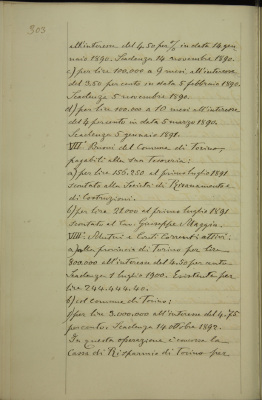 303
all'interesse del 4.50 per % in data 14 gen
naio 1890. Scadenza 14 novembre 1890.
c) per lire 100,000 a 9 mesi all'interesse
del 3.50 per cento in data 5 febbraio 1890.
Scadenza 5 novembre 1890.
d) per lire 100.000 a 10 mesi all'interesse
del 4 per cento in data 5 marzo 1890.
Scadenza 5 gennaio 1891.
VII° Buoni del Comune di Torino
pagabili alla sua Tesoreria:
a) per lire 156.250 al primo luglio 1891
scontato alla Società di Risanamento e
di Costruzioni.
b) per lire 92000 al primo luglio 1891
scontato al Cav. Giuseppe Maggia.
VIII° Mutui e Conti Correnti attivi:
a) alla provincia di Torino per lire
300.000 all'interesse del 4.50 per cento.
Scadenza 1 luglio 1900. Esistente per
lire 244.444.40.
b) col comune di Torino:
per lire 3.000.000 all'interesse del 4.75
per cento. Scadenza 14 ottobre 1892.
In questa operazione è concorsa la
Cassa di Risparmio di Torino per